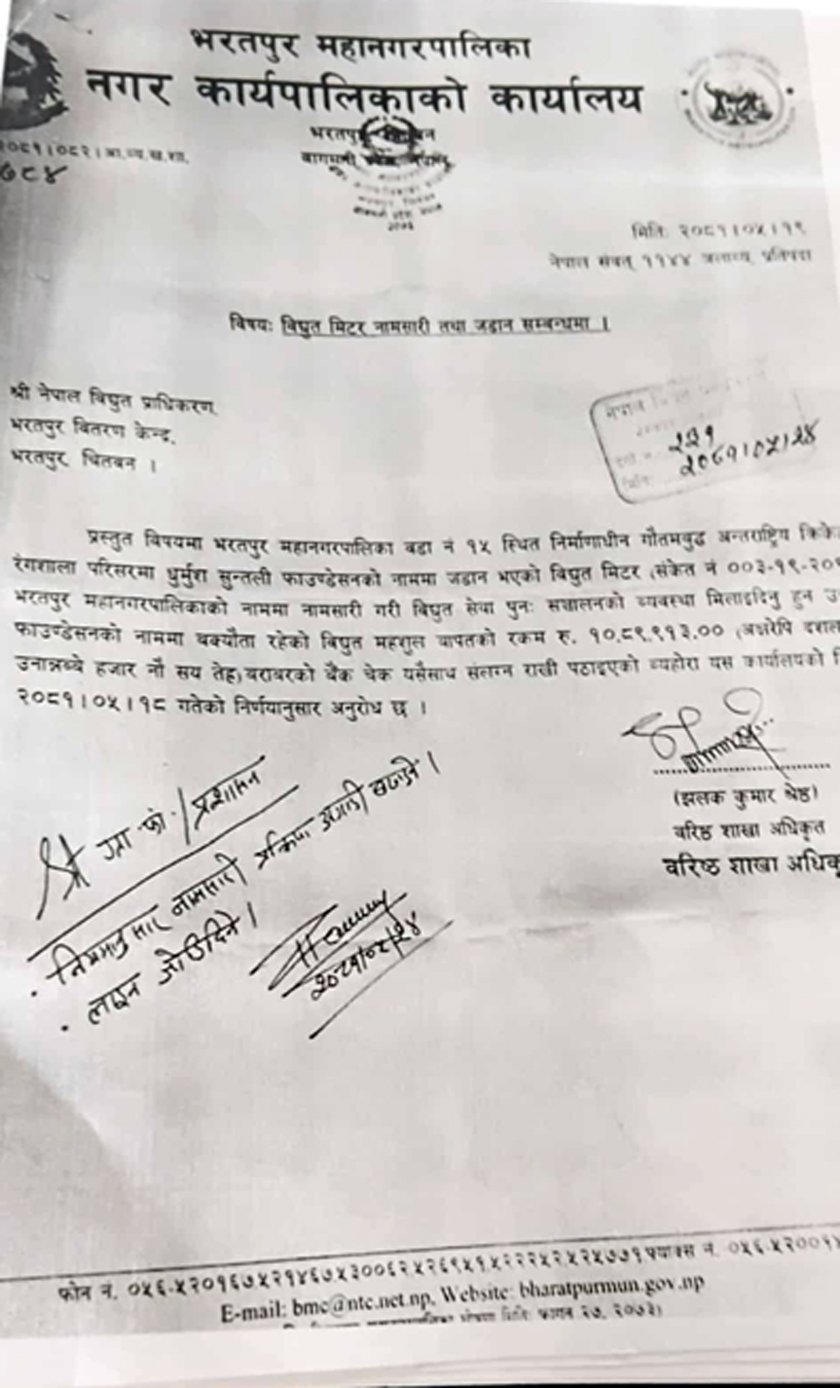 भरतपुर महानगरपालिका
नगर कार्यपालिकाको कार्यालय
भरतपुर, चितवन
बागमती प्रदेश, नेपाल
२०८१।०८२।
७८४
मितिः २०८१।०५।१९
नेपाल संवत् ११४४ ञलाथ्व, प्रतिपदा
विषयः विद्युत मिटर नामसारी तथा जडान सम्बन्धमा ।
श्री नेपाल विद्युत प्राधिकरण,
भरतपुर वितरण केन्द्र,
भरतपुर, चितवन ।
२३१
२०८१।०५।२४
प्रस्तुत विषयमा भरतपुर महानगरपालिका वडा नं १५ स्थित निर्माणाधीन गौतमबुद्ध अन्तराष्ट्रिय क्रिके
रंगशाला परिसरमा धुर्मुश सुन्तली फाउण्डेसनको नाममा जडान भएको विद्युत मिटर (संकेत नं ००३-१९-२०
भरतपुर महानगरपालिकाको नाममा नामसारी गरी विद्युत सेवा पुनः सञ्चालनको व्यवस्था मिलाइदिनु हुन उ
फाउण्डेसनको नाममा बक्यौता रहेको विद्युत महशुल वापतको रकम रु. १०,८९,९१३.०० (अक्षरेपि दशला
उनान्नब्बे हजार नौ सय तेह्र) बराबरको बैंक चेक यसैसाथ संलग्न राखी पठाइएको व्यहोरा यस कार्यालयको मि
२०८१।०५।१८ गतेको निर्णयानुसार अनुरोध छ ।
(झलक कुमार श्रेष्ठ)
वरिष्ठ शाखा अधिकृत
वरिष्ठ शाखा अधिकृ
श्री उप्रा फाँ / प्रशासन
• नियमानुसार नामसारी प्रक्रिया अगाडी बढाउने ।
• लाइन जोडिदिने ।
फोन नं. ०५६-५२०१६७
E-mail: bmc@ntc.net.np, Website: bharatpurmun.gov.np